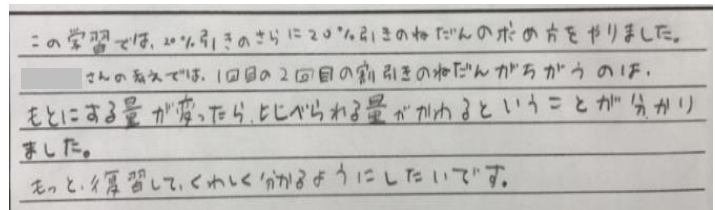 この学習では、20%引きのさらに20%引きのねだんの求め方をやりました。
さんの考えでは、1回目の2回目の割引きのねだんがちがうのは、
もとにする量が変ったら、比べられる量がかわるということが分かり
ました。
もっと、復習して、くわしく分かるようにしたいです。